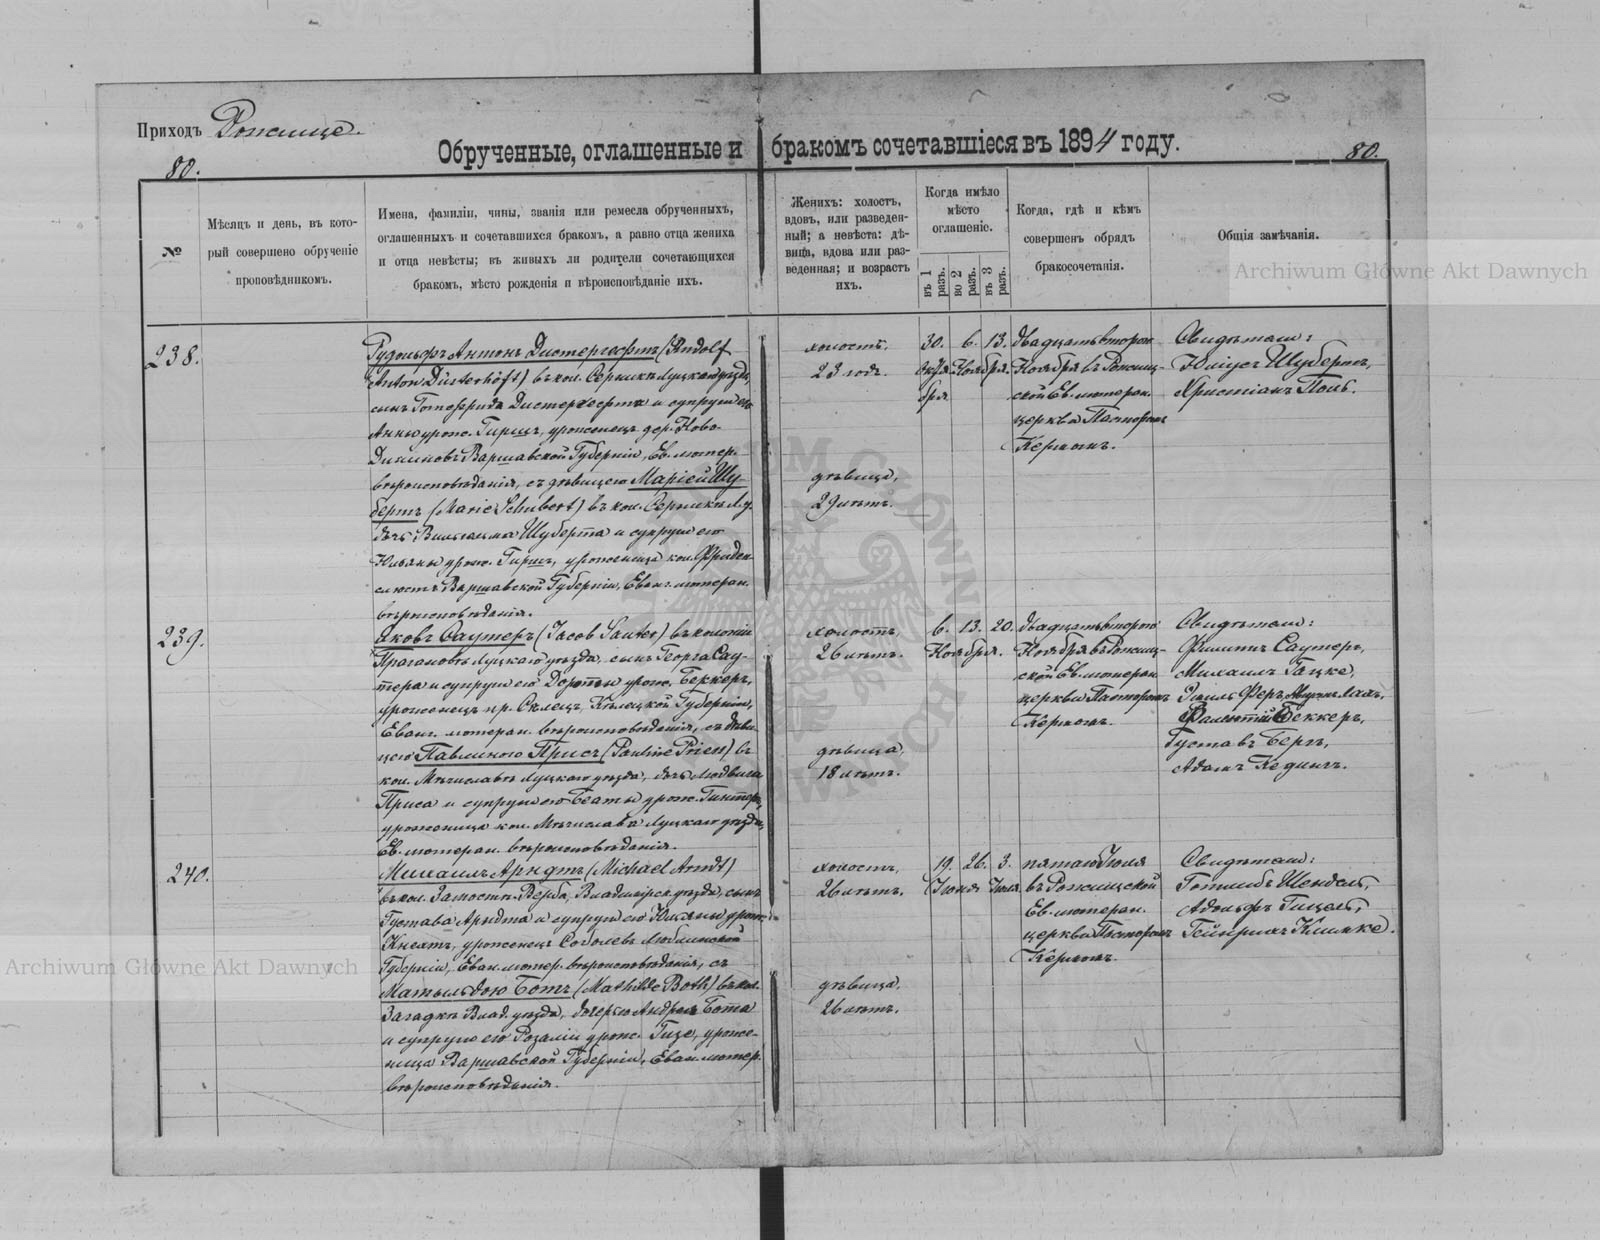 Приходъ Рожище.
80.
Обрученные, оглашенные и бракомъ сочетавшіеся въ 1894 году.
80.
№
Мѣсяцъ и день, въ кото-
рый совершено обрученіе
проповѣдникомъ.
Имена, фамиліи, чины, званія или ремесла обрученныхъ,
оглашенныхъ и сочетавшихся бракомъ, а равно отца жениха
и отца невѣсты; въ живыхъ ли родители сочетающихся
бракомъ, мѣсто рожденія и вѣроисповѣданіе ихъ.
Женихъ: холостъ,
вдовъ, или разведен-
ный; а невѣста: дѣ-
вица, вдова или раз-
веденная; и возрастъ
ихъ.
Когда имѣло
мѣсто
оглашеніе.
въ 1 разъ.
во 2 разъ.
въ 3 разъ.
Когда, гдѣ и кѣмъ
совершенъ обрядъ
бракосочетанія.
Общія замѣчанія.
238.
Рудольфъ Антонъ Дистергефтъ (Rudolf
Anton Düsterhöft) въ кол. Серникъ Луцкаго уѣзда,
сынъ Готофрида Дистергефта и супруги его
Анны урож. Гиршъ, уроженецъ дер. Ново-
Варшавской Губерніи, Ев. лютер.
вѣроисповѣданія, съ дѣвицею Маріею Шу-
бертъ (Marie Schubert) въ кол. Серникъ Л. у.
дочь Вильгельма Шуберта и супруги его
Юльяны урож. Гиршъ, уроженица кол. Фриден-
Варшавской Губерніи, Еванг. лютеран.
вѣроисповѣданія.
холостъ,
23 годъ.
дѣвица,
29 лѣтъ.
30. 6. 13.
Октя Ноября.
бря
двадцать второго
Ноября въ Рожищ-
ской Ев. лютеран.
церкви Пасторомъ
Кермомъ.
Свидѣтели:
Юліусъ Шубертъ,
Христіанъ Поль.
239.
Яковъ Саутеръ (Jacob Sauter) въ колоніи
Луцкаго уѣзда, сынъ Георга Сау-
тера и супруги его Доротеи урож. Беккеръ,
уроженецъ Кѣлецкой Губерніи,
Еванг. лютеран. вѣроисповѣданія, съ дѣви-
цею Павлиною Присъ (Pauline Prien) въ
кол. Мечиславъ Луцкаго уѣзда, дочь Людвига
Приса и супруги его Беаты урож. Гинтеръ,
уроженица кол. Мечиславъ Луцкаго уѣзда,
Ев. лютеран. вѣроисповѣданія.
холостъ,
26 лѣтъ.
дѣвица,
18 лѣтъ.
6. 13. 20.
Ноября.
двадцать второго
Ноября въ Рожищ-
ской Ев. лютеран.
церкви Пасторомъ
Кермомъ.
Свидѣтели:
Филиппъ Саутеръ,
Михаилъ Гацке,
Валентій Беккеръ,
Густавъ Беръ,
Адамъ Кединъ.
240.
Михаилъ Арндтъ (Michael Arndt)
въ кол. Замосты-Верба, Владимірск. уѣзда, сынъ
Густава Арндта и супруги его Юльяны урож.
уроженецъ Соболевъ Люблинской
Губерніи, Еван. лютер. вѣроисповѣданія, съ
Матыльдою Ботъ (Mathilde Both) въ кол.
Загадкъ Влад. уѣзда, дочерью Андрея Бота
и супруги его Розаліи урож. Гизе, уроже-
ница Варшавской Губерніи, Еван. лютер.
вѣроисповѣданія.
холостъ,
26 лѣтъ.
дѣвица.
26 лѣтъ.
19. 26. 3.
Іюня Іюля
пятаго Іюля
въ Рожищской
Ев. лютеран.
церкви Пасторомъ
Кермомъ.
Свидѣтели:
Готлибъ Шендель,
Адольфъ Гицель,
Гейнрихъ Климке.
Archiwum Główne Akt Dawnych
Archiwum Główne Akt Dawnych